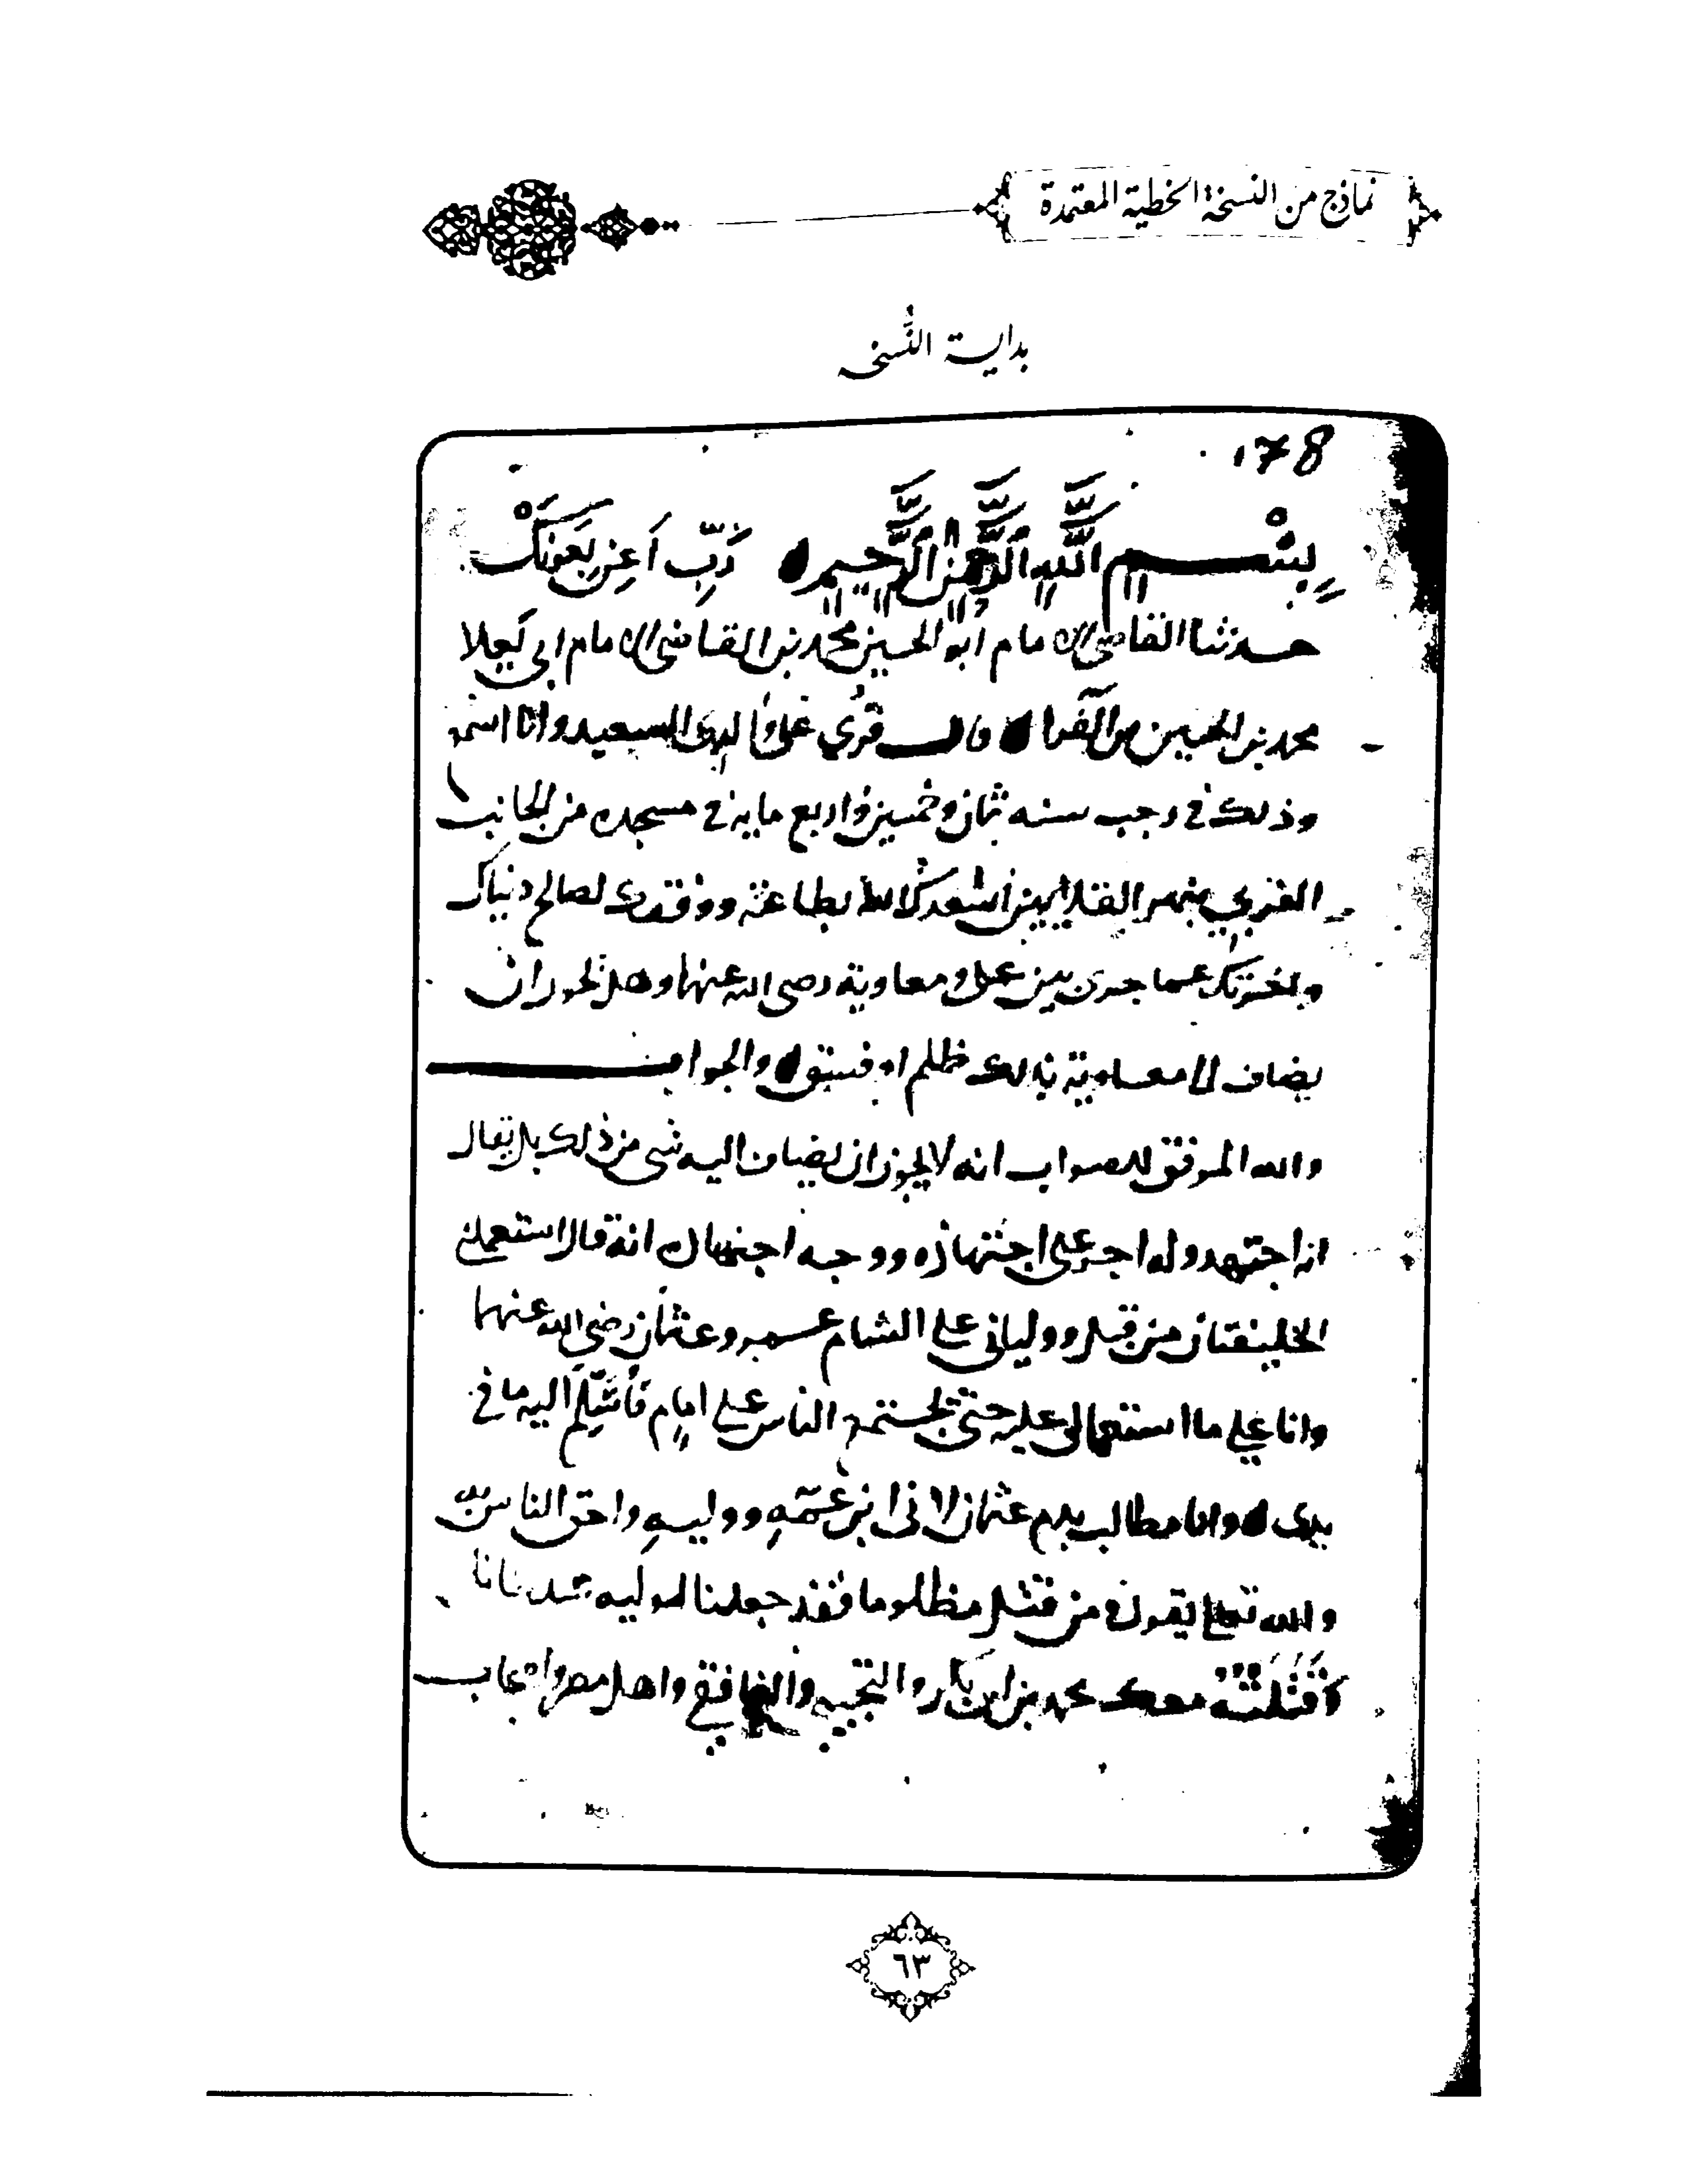 نماذج من النسخة الخطية المعتمدة
بداية النسخة
178
بسم الله الرحمن الرحيم رب اعن بعونك
حدثنا القاضي الامام ابو الحسين محمد بن القاضي الامام ابي يعلا
محمد بن الحسين بن الفرا قال قري على والدي السعيد وانا اسمع
وذلك في رجب سنه ثمان وخمسين واربع مايه في مسجده من الجانب
الغربي بنهر القلايين أسعدك الله بطاعته ووفقك لصالح دنياك
واخرتك عما جرى بين علي ومعاوية رضي الله عنهما وهل يجوز ان
يضاف الا معاوية بذلك ظلم او فسق والجواب
والله الموفق للصواب انه لا يجوز ان يضاف اليه شي من ذلك بل يقال
انه اجتهد وله اجر على اجتهاده ووجه اجتهاده انه قال استعملني
الخليفتان من قبل وولياني على الشام عمر وعثمان رضي الله عنهما
وانا على ما استعمالى عليه حتى يجتمع الناس على امام فأسلم اليه ما في
يدي وانا مطالب بدم عثمان لاني ابن عمه ووليه واحق الناس به
والله تعالى يقول ومن قتل مظلوما فقد جعلنا لوليه سلطانا
وقتلته معك محمد بن ابي بكر والتجيبي والغافقي واهل مصر واصحاب
٦٣